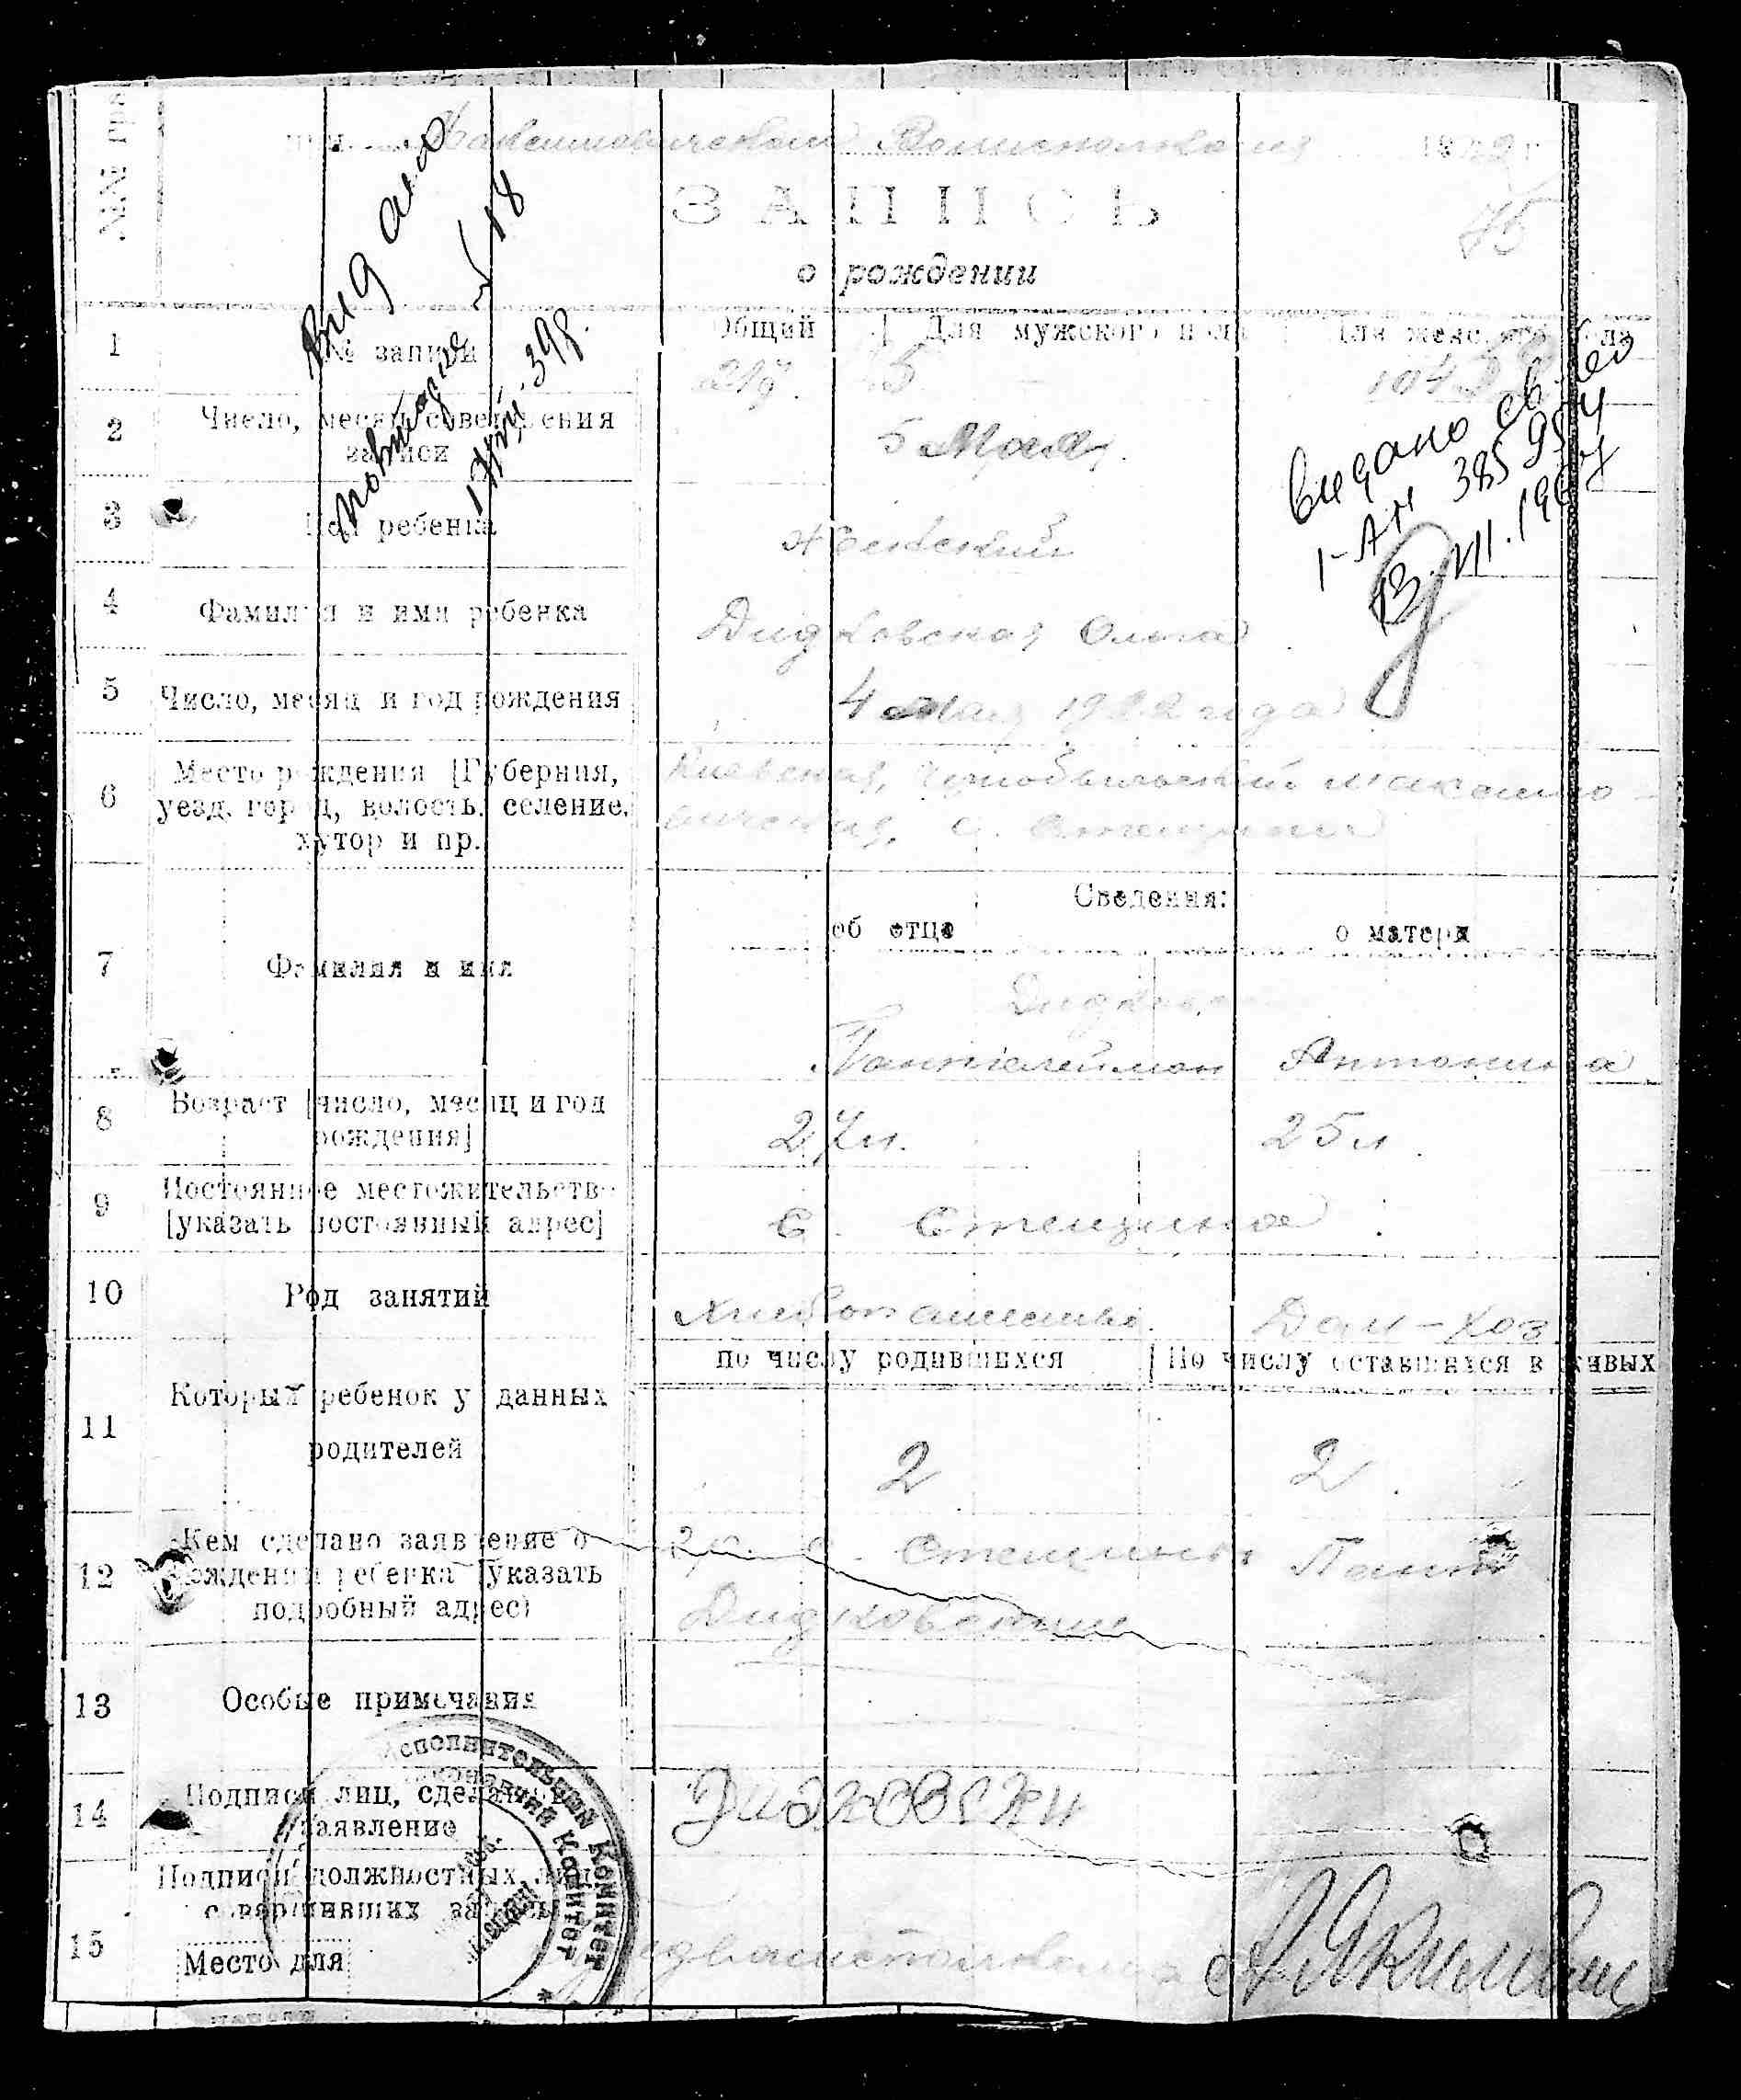 №№ гра
при Максимовическом Волисполкоме 1922 г.
75
ЗАПИСЬ
о рождении
Видано
повторне
398
видано св-во
1-АН 385954
13.VII.1967
1 № записи Общий Для мужского пола Для женского пола
219. 104
2 Число, месяц совершения
записи
5 Мая.
3 Пол ребенка Женский
4 Фамилия и имя ребенка Дидковская Ольга
5 Число, месяц и год рождения 4 мая 1922 года
6 Место рождения [Губерния,
уезд, город, волость, селение,
хутор и пр.
Киевская, Чернобыльский Максимо-
вичская, с. Стещина
Сведения:
об отце о матери
7 Фамилия и имя
Пантелеймон Антонина
8 Возраст [число, месяц и год
рождения]
27 л. 25 л.
9 Постоянное местожительство
[указать постоянный адрес]
с. Стещина
10 Род занятий Хлебопашество. Дом-хоз
по числу родившихся По числу оставшихся в живых
11 Который ребенок у данных
родителей
2 2
12 Кем сделано заявление о
рождении ребенка [указать
подробный адрес)
гр. с. Стещины Пант
Дидковским
13 Особые примечания
14 Подписи лиц, сделавших
заявление
Дидковски
15 Подписи должностных лиц,
совершивших запись
Место для
Исполнительный Комитет